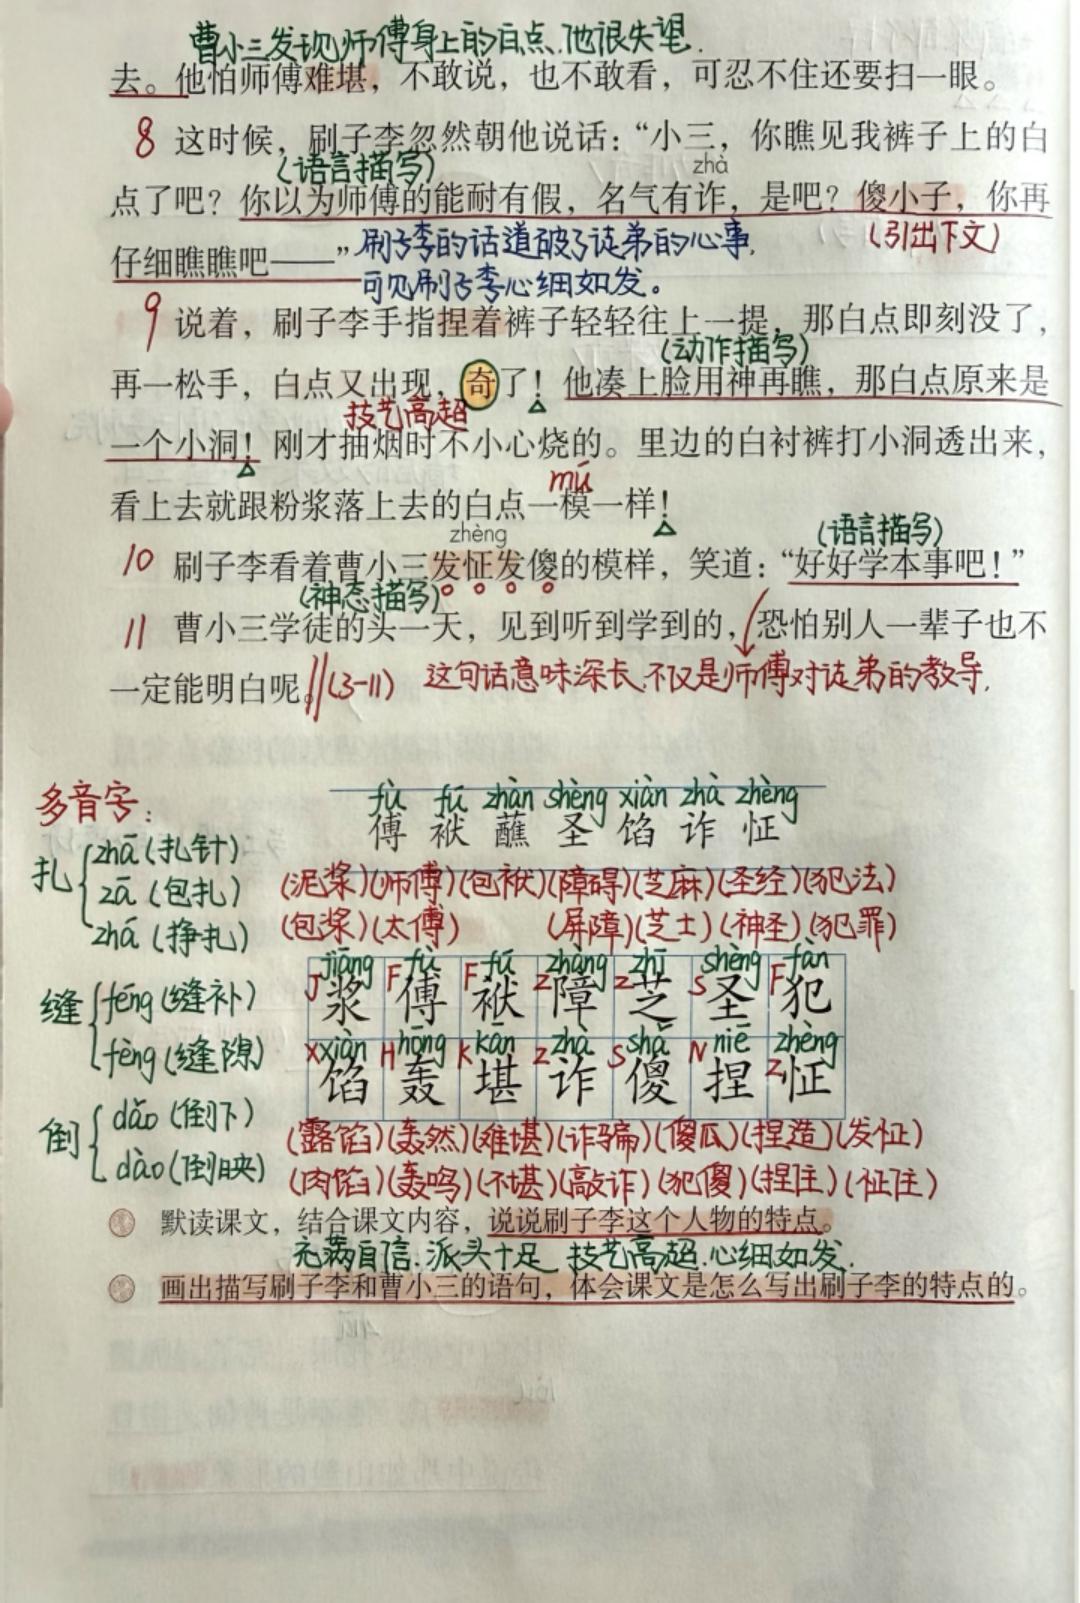 曹小三发现师傅身上的白点、他很失望.
去。他怕师傅难堪，不敢说，也不敢看，可忍不住还要扫一眼。
8 这时候，刷子李忽然朝他说话：“小三，你瞧见我裤子上的白
(语言描写) zhà
点了吧？你以为师傅的能耐有假，名气有诈，是吧？傻小子，你再
刷子李的话道破了徒弟的心事, (引出下文)
仔细瞧瞧吧——”
可见刷子李心细如发。
9 说着，刷子李手指捏着裤子轻轻往上一提，那白点即刻没了，
(动作描写)
再一松手，白点又出现，奇了！他凑上脸用神再瞧，那白点原来是
技艺高超
一个小洞！刚才抽烟时不小心烧的。里边的白衬裤打小洞透出来，
mú
看上去就跟粉浆落上去的白点一模一样！
zhèng (语言描写)
10 刷子李看着曹小三发怔发傻的模样，笑道：“好好学本事吧！”
(神态描写)
11 曹小三学徒的头一天，见到听到学到的，恐怕别人一辈子也不
一定能明白呢。(3-11) 这句话意味深长.不仅是师傅对徒弟的教导.
多音字：
扎 zhā(扎针)
zā(包扎)
zhá(挣扎)
缝 féng(缝补)
fèng(缝隙)
倒 dǎo(倒下)
dào(倒映)
fù fú zhàn shèng xiàn zhà zhèng
傅 袱 蘸 圣 馅 诈 怔
(泥浆)(师傅)(包袱)(障碍)(芝麻)(圣经)(犯法)
(包浆)(太傅) (屏障)(芝士)(神圣)(犯罪)
jiāng fù fú zhàng zhī shèng fàn
J浆 F傅 F袱 Z障 Z芝 S圣 F犯
xiàn hōng kān zhà shǎ niē zhèng
X馅 H轰 K堪 Z诈 S傻 N捏 Z怔
(露馅)(轰然)(难堪)(诈骗)(傻瓜)(捏造)(发怔)
(肉馅)(轰鸣)(不堪)(敲诈)(犯傻)(捏住)(怔住)
默读课文，结合课文内容，说说刷子李这个人物的特点。
充满自信.派头十足 技艺高超.心细如发.
画出描写刷子李和曹小三的语句，体会课文是怎么写出刷子李的特点的。